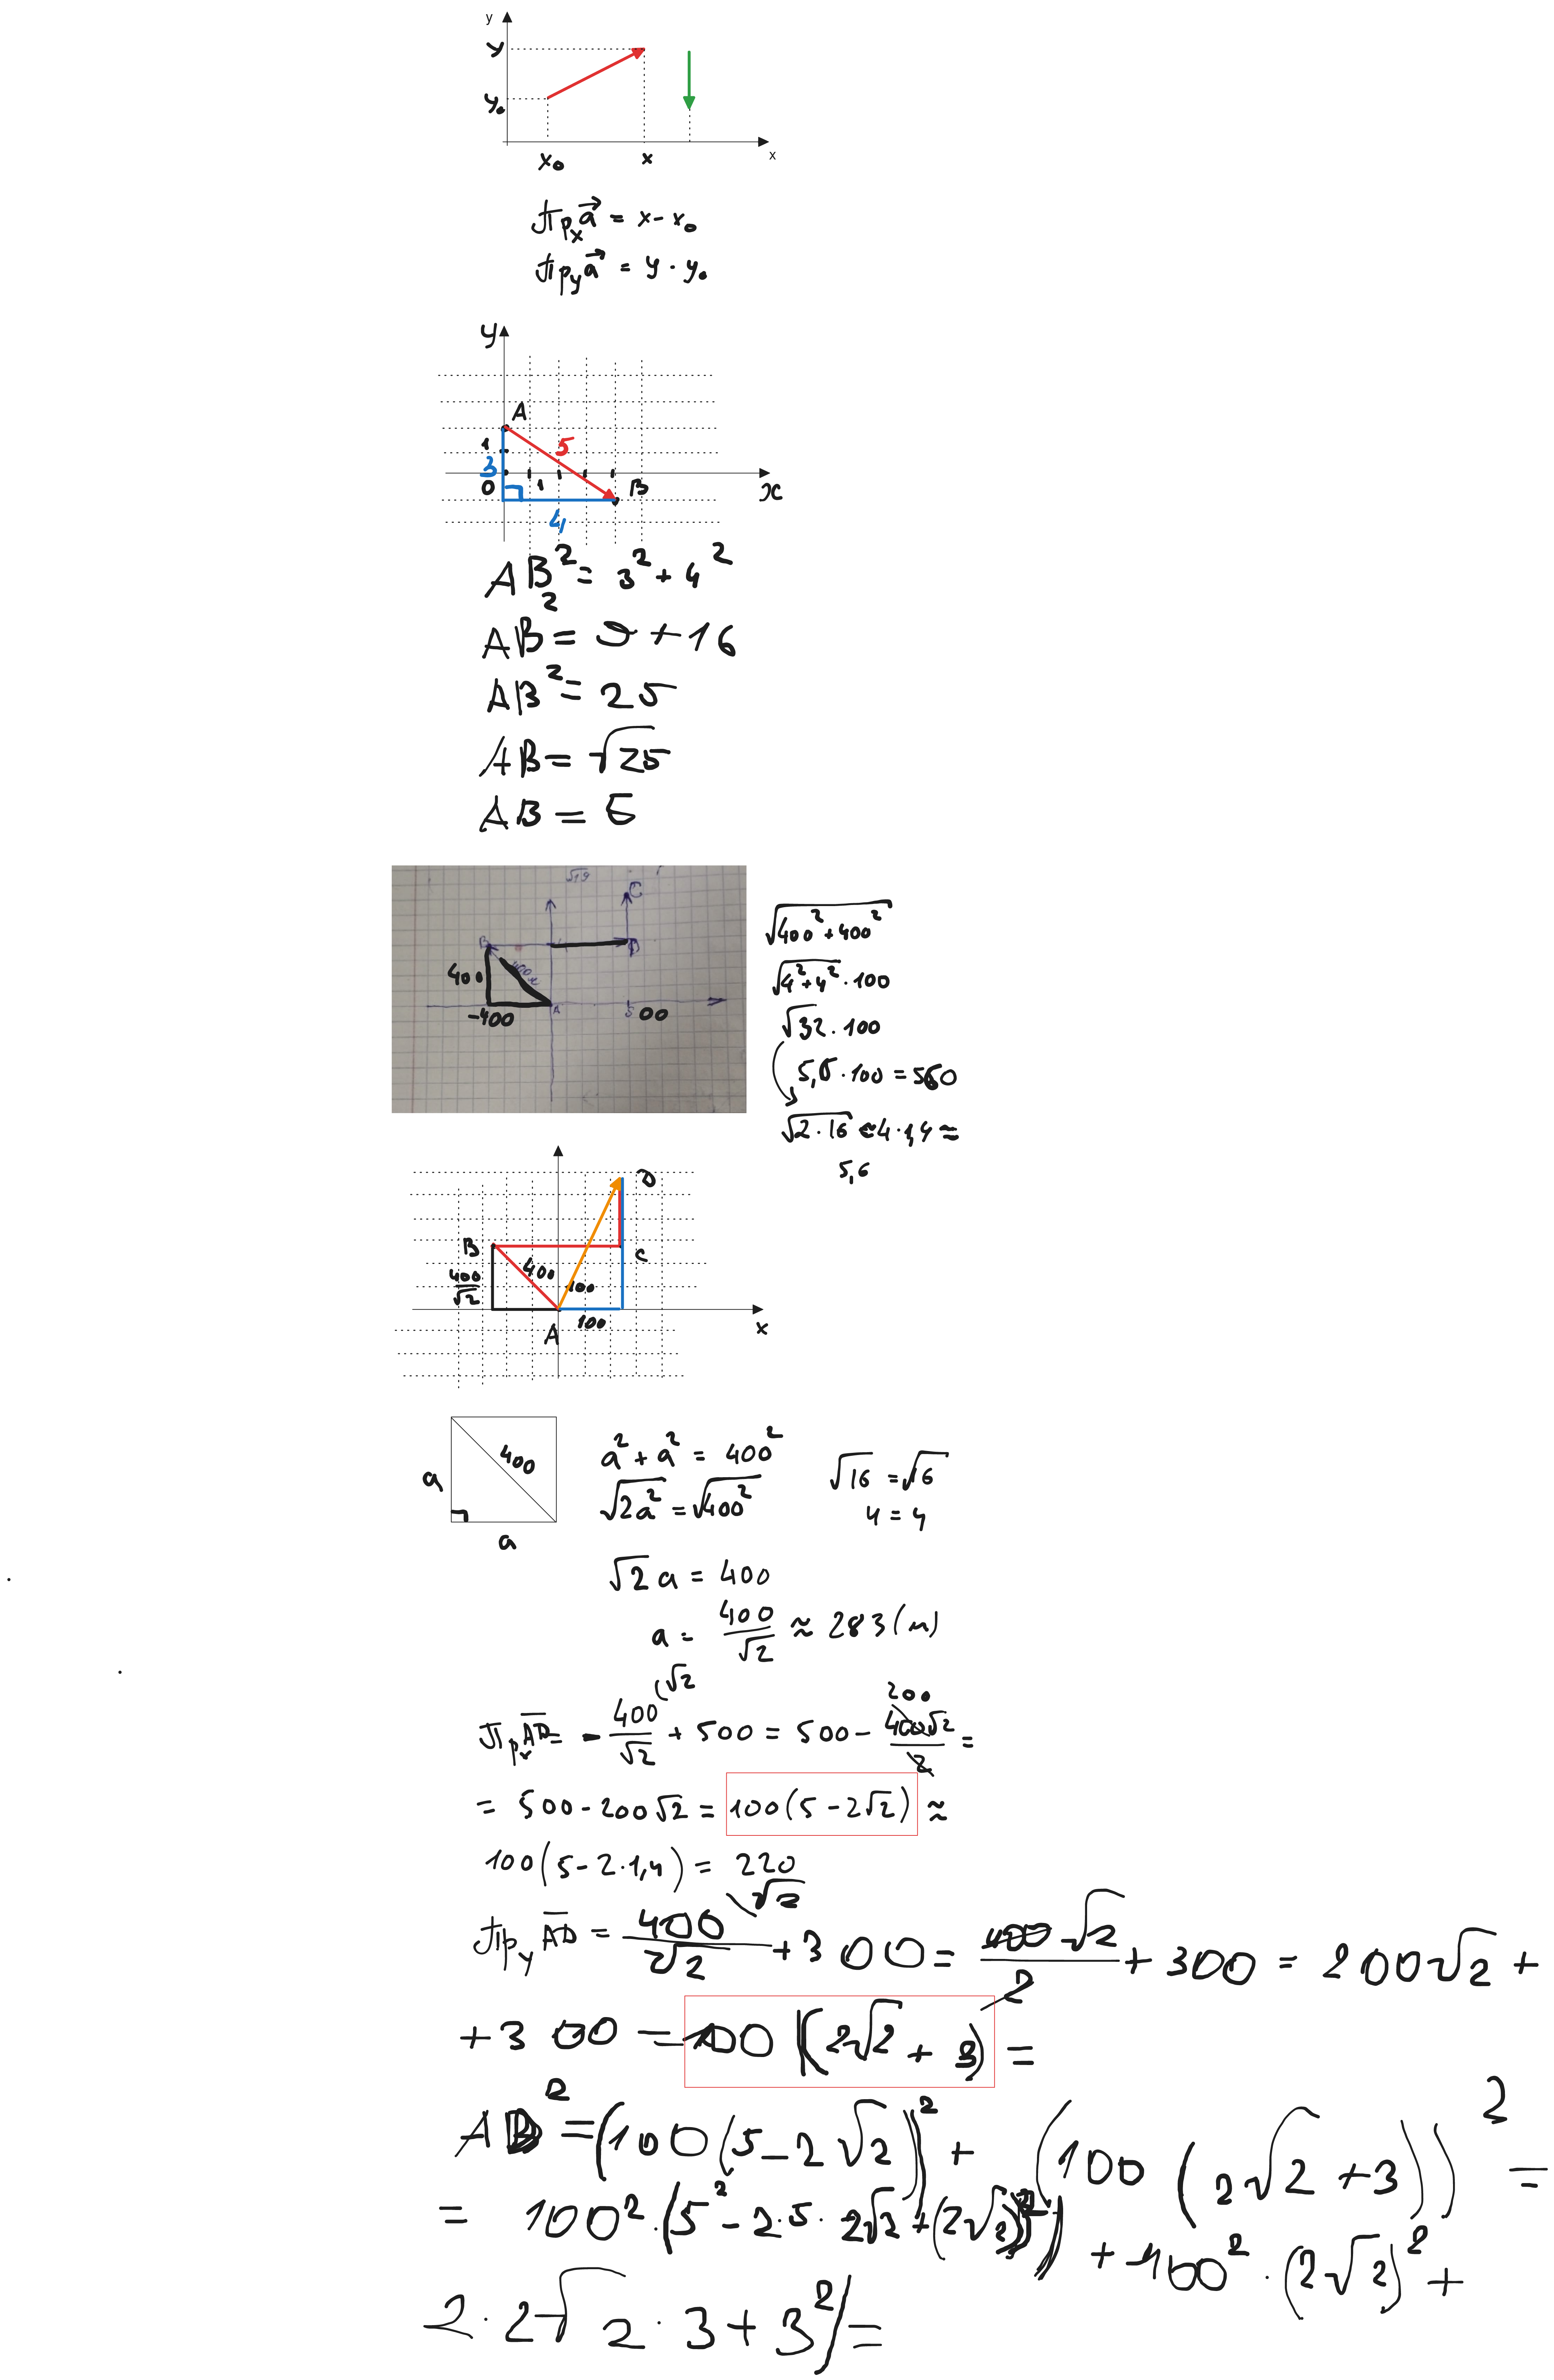 y
y
y₀
x₀ x x
Прₓa⃗ = x - x₀
Прᵧa⃗ = y - y₀
y
A
5
1
3
0 1 B x
4
AB² = 3² + 4²
AB² = 9 + 16
AB² = 25
AB = √25
AB = 5
√19
C
B D
400
-400 A 500
√(400² + 400²)
√(4² + 4²) · 100
√32 · 100
5,6 · 100 = 560
√(2 · 16) ≈ 4 · 1,4 ≈
5,6
D
B C
400/√2 400 100
A 100 x
400
a
a
a² + a² = 400²
√(2a²) = √(400²)
√16 = √16
4 = 4
√2 a = 400
a = 400/√2 ≈ 283 (м)
Прₓ AD = - 400/√2 (√2 + 500 = 500 - 400√2/2 200 =
= 500 - 200√2 = 100(5 - 2√2) ≈
100(5 - 2 · 1,4) = 220
Прᵧ AD = 400/√2 \√2 + 300 = 400√2/2 + 300 = 200√2 +
+ 300 = 100 (2√2 + 3) =
AD² = (100(5 - 2√2))² + (100(2√2 + 3))² =
= 100² · (5² - 2 · 5 · 2√2 + (2√2)²) + 100² · (2√2)² +
2 · 2√2 · 3 + 3²) =